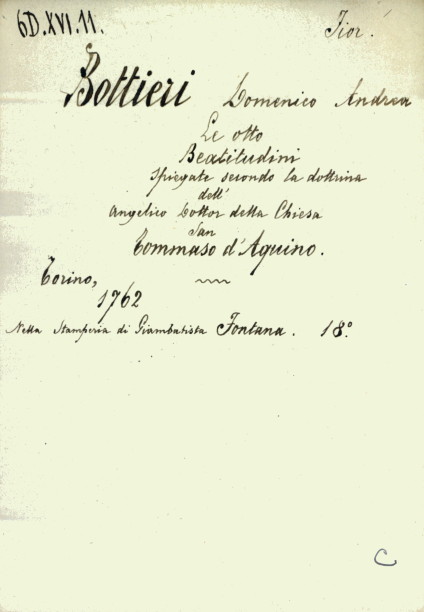 6D.XVI.11. Fior.
Bottieri Domenico Andrea
Le otto
Beatitudini
spiegate secondo la dottrina
dell'
Angelico Dottor della Chiesa
San
Tommaso d'Aquino.
Torino,
1762
Nella Stamperia di Giambatista Fontana. 18°
C